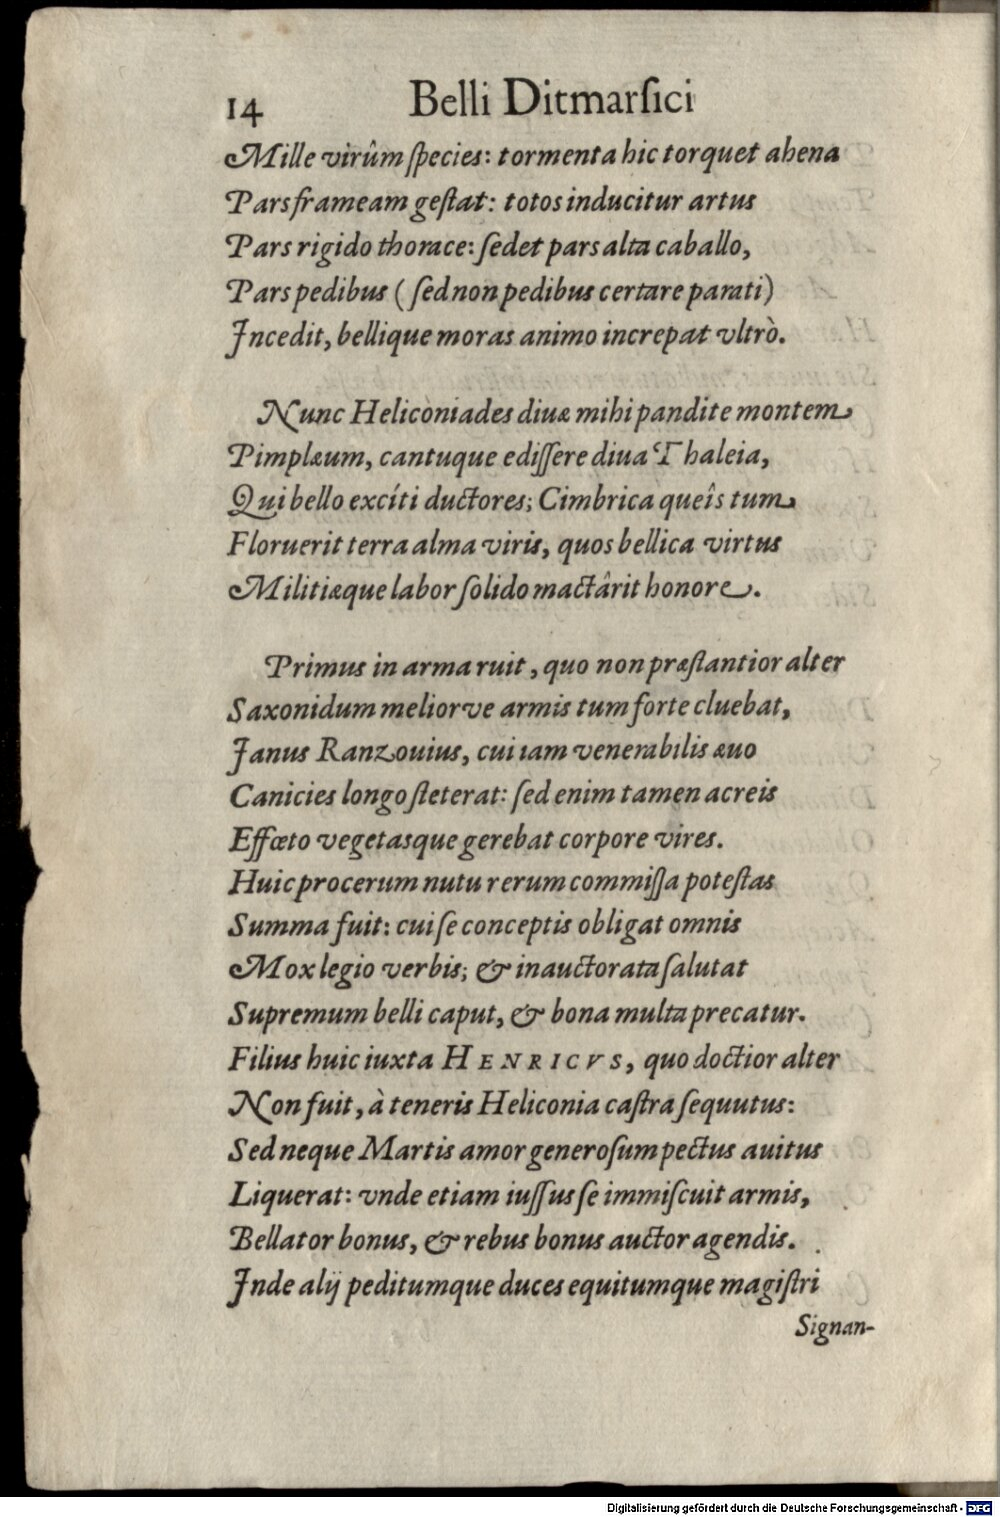 14 Belli Ditmarſici
Mille virûm ſpecies: tormenta hic torquet ahena
Pars frameam geſtat: totos inducitur artus
Pars rigido thorace: ſedet pars alta caballo,
Pars pedibus (ſed non pedibus certare parati)
Incedit, bellique moras animo increpat vltrò.
Nunc Heliconiades diuæ mihi pandite montem
Pimplæum, cantuque ediſſere diua Thaleia,
Qui bello excíti ductores; Cimbrica queîs tum
Floruerit terra alma viris, quos bellica virtus
Militiæque labor ſolido mactârit honore.
Primus in arma ruit, quo non præſtantior alter
Saxonidum meliorve armis tum forte cluebat,
Janus Ranzouius, cui iam venerabilis æuo
Canicies longo ſteterat: ſed enim tamen acreis
Effœto vegetasque gerebat corpore vires.
Huic procerum nutu rerum commiſſa poteſtas
Summa fuit: cui ſe conceptis obligat omnis
Mox legio verbis; & inauctorata ſalutat
Supremum belli caput, & bona multa precatur.
Filius huic iuxta HENRICVS, quo doctior alter
Non fuit, à teneris Heliconia caſtra ſequutus:
Sed neque Martis amor generoſum pectus auitus
Liquerat: vnde etiam iuſſus ſe immiſcuit armis,
Bellator bonus, & rebus bonus auctor agendis.
Inde alij peditumque duces equitumque magiſtri
Signan-
Digitalisierung gefördert durch die Deutsche Forschungsgemeinschaft - DFG